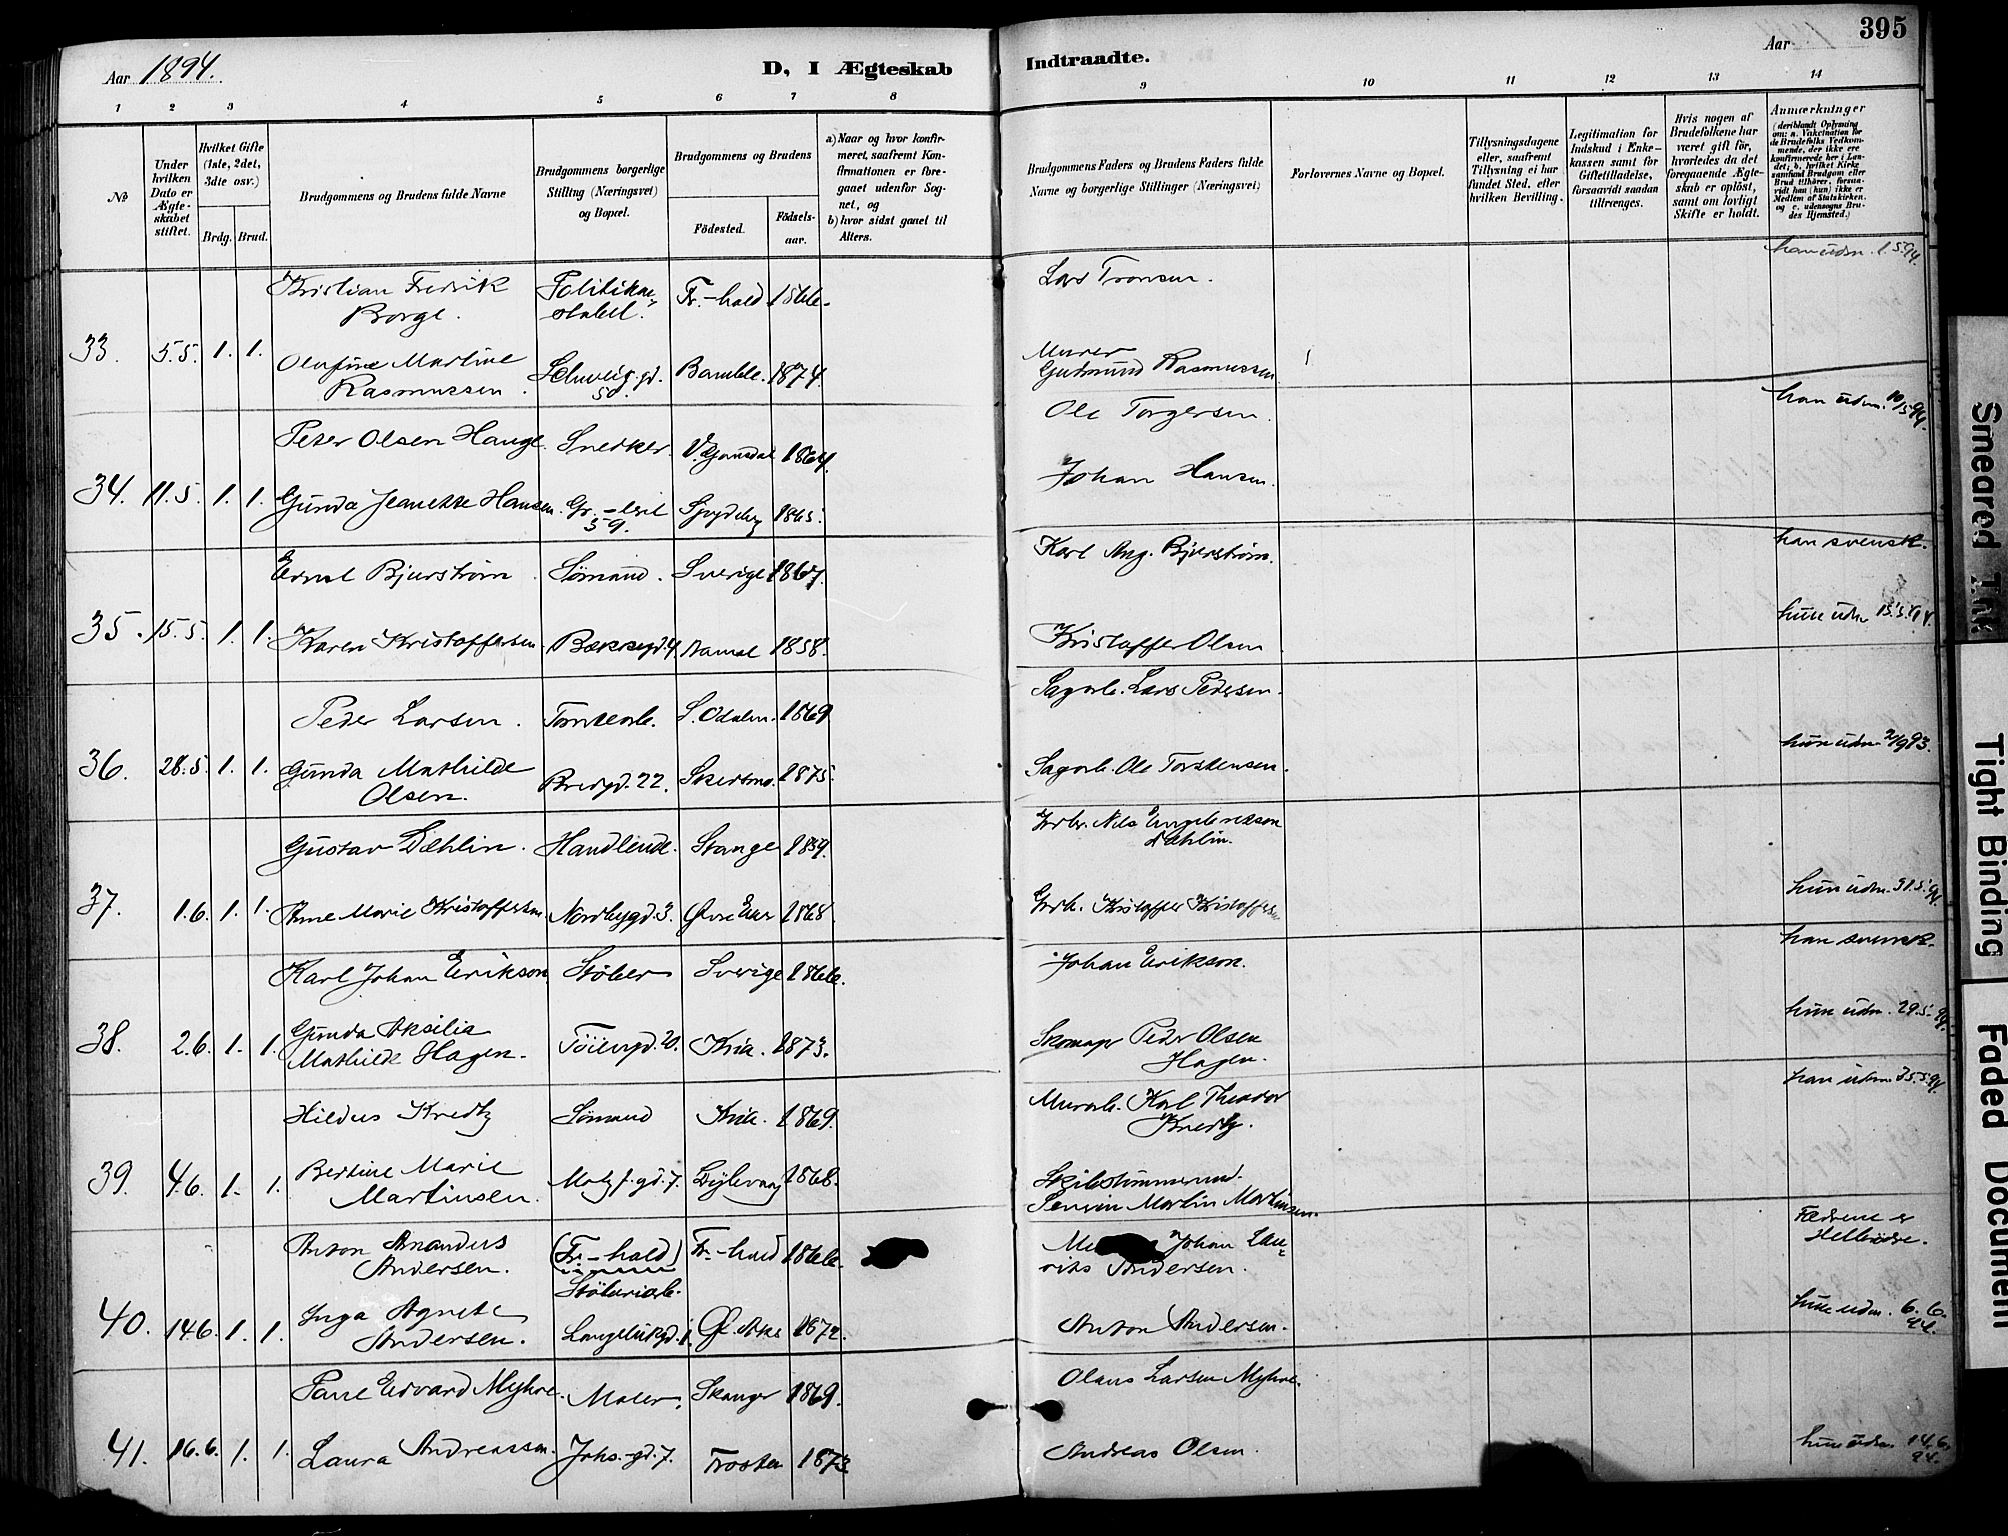 Aar 1894.
D, I Ægteskab
Indtraadte.
Aar
395
1 2 3 4 5 6 7 8
9 10 11 12 13 14
№
Under hvilken Dato er Ægteskabet stiftet.
Hvilket Gifte (1ste, 2det, 3dte osv.)
Brdg. Brud.
Brudgommens og Brudens fulde Navne
Brudgommens borgerlige Stilling (Næringsvei) og Bopæl.
Brudgommens og Brudens
Födested.
Födselsaar.
a) Naar og hvor konfirmeret, saafremt Konfirmationen er foregaaet udenfor Sognet, og
b) hvor sidst gaaet til Alters.
Brudgommens Faders og Brudens Faders fulde Navne og borgerlige Stillinger (Næringsvei)
Forlovernes Navne og Bopæl.
Tillysningsdagene eller, saafremt Tillysning ei har fundet Sted, efter hvilken Bevilling.
Legitimation for Indskud i Enkekassen samt for Giftetilladelse, forsaavidt saadan tiltrænges.
Hvis nogen af Brudefolkene har været gift för, hvorledes da det foregaaende Ægteskab er oplöst, samt om lovligt Skifte er holdt.
Anmærkninger
(deriblandt Oplysning om: a. Vakcination for de Brudefolks Vedkommende, der ikke ere konfirmerede her i Landet; b. hvilket Kirkesamfund Brudgom eller Brud tilhörer, forsaavidt han (hun) ikke er Medlem af Statskirken, og c. udensogns Brudes Hjemsted.)
33. 5.5. 1. 1. Kristian Fredrik Borge. Politikonstabel. Fr.-hald 1866. Lars Tronsen. han udm. 1.5.94.
Olufine Martine Rasmussen Schweig.gd. 50. Bamble. 1874. Murer Gudmund Rasmussen
34. 11.5. 1. 1. Peter Olsen Hauge. Snedker. 1864. Ole Torgersen. han udm. 10/5 94.
Gunda Jeanette Hansen. 59. 1865. Johan Hansen.
35. 15.5. 1. 1. Ernst Bjurström. Sömand. Sverige 1867. Karl Aug. Bjurström. han svensk.
Karen Kristoffersen Bakkegd. 4. 1858. Kristoffer Olsen hun udm 15.5.94.
36. 28.5. 1. 1. Peder Larsen. Tomtearb. S. Odalen. 1869 Sagarb. Lars Pedersen.
Gunda Mathilde Olsen. Bredgd. 22. Skedsmo. 1875. Sagarb. Ole Torstensen. hun udm 2/9 93.
37. 1.6. 1. 1. Gustav Dæhlin. Handlende. Stange 1859. Nils Engebretson Dæhlin.
Anne Marie Kristoffersen Nordbygd. 3. Øvre Eker 1868. Kristoffer Kristoffersen hun udm. 31.5.94.
38. 2.6. 1. 1. Karl Johan Erikson Stöber Sverige 1866. Johan Erikson. han svensk.
Gunda Aksilia Mathilde Hagen. Töiengd. 20. Kria. 1873. Skomager Peder Olsen Hagen. hun udm. 29.5.94.
39. 4.6. 1. 1. Hildus Kredtz Sömand Kria. 1869. Murarb. Karl Theodor Kredtz. han udm. 25.5.94.
Bertine Marie Martinsen. 1868. Skibstömmermd. Martin Martinsen.
40. 14.6. 1. 1. Anton Anandus Andersen. (Fr.-hald) Stöberiarb. Fr.-hald 1866. Johan Laurits Andersen. Fædrene er Helbrödre.
Inga Agnete Andersen. Langleikgd. 1. Ø. Aker 1872. Anton Andersen. hun udm. 6.6.94.
41. 16.6. 1. 1. Paul Edvard Myhre. Maler. 1869. Olaus Larsen Myhre.
Laura Andreassen. Johs.-gd. 7. Trosten 1873 Andreas Olsen. hun udm. 14.6.94.
Smeared Ink
Tight Binding
Faded Document